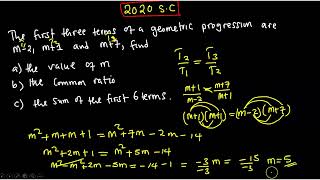 2020 S.C
The first three terms of a geometric progression are
m-2, m+1 and m+7, find
a) the value of m
b) the common ratio
c) the sum of the first 6 terms.
T2/T1 = T3/T2
m+1/m-2 = m+7/m+1
(m+1)(m+1) = (m-2)(m+7)
m²+m+m+1 = m²+7m-2m-14
m²+2m+1 = m²+5m-14
m²-m²+2m-5m = -14-1
-3/-3 m = -15/-3
m=5